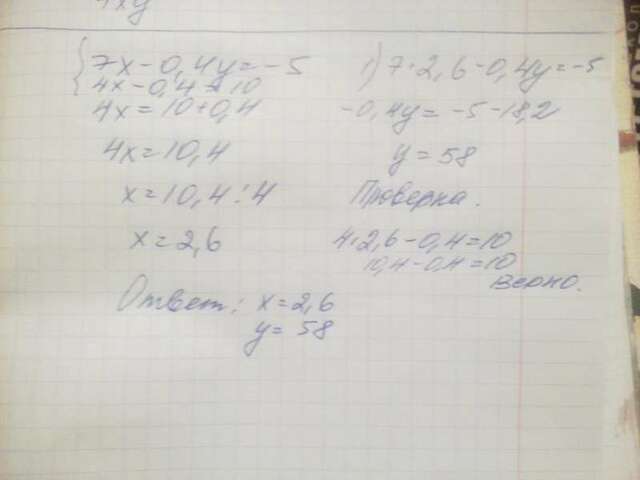 4xy
{7x-0,4y=-5
4x-0,4=10
4x=10+0,4
4x=10,4
x=10,4:4
x=2,6
1) 7·2,6-0,4y=-5
-0,4y=-5-18,2
y=58
Проверка.
4·2,6-0,4=10
10,4-0,4=10
верно.
Ответ: x=2,6
y=58